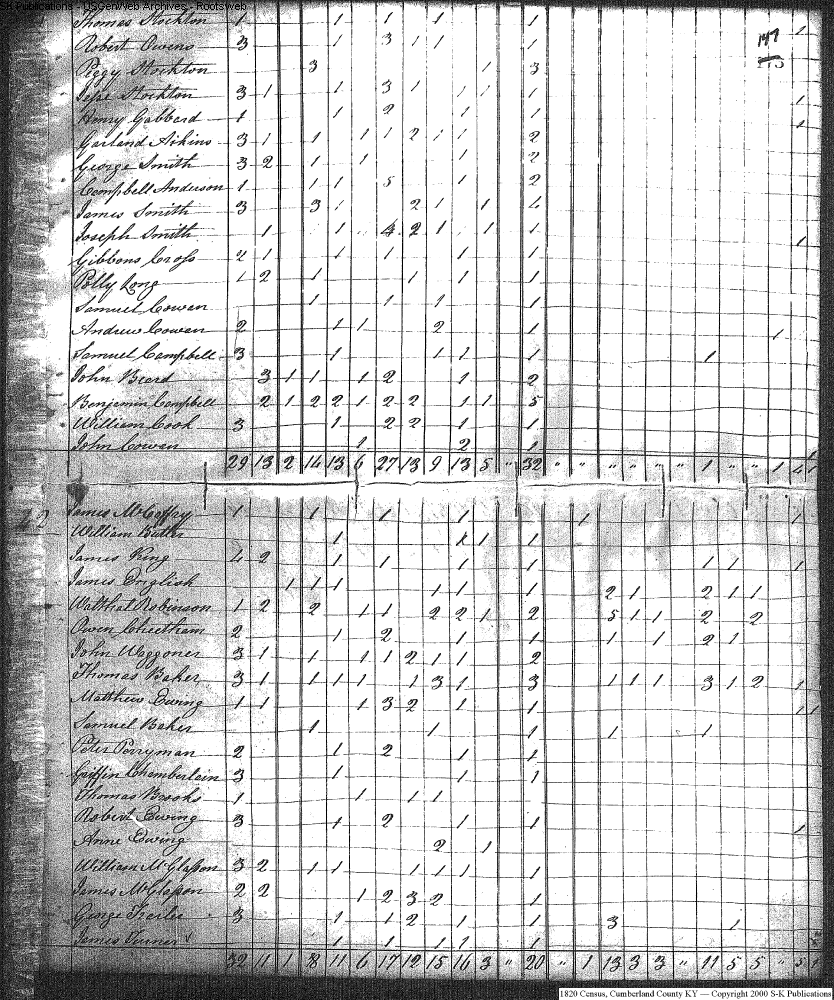 S-K Publications - USGenWeb Archives - Rootsweb
Thomas Stockton 1 1 1 1 1 1
Robert Owens 3 1 3 1 1 1
147
Peggy Stockton 3 1 3
Jesse Stockton 3 1 1 3 1 1 1 1 1
Henry Gabbard 1 1 2 1 1 1
Garland Aikins 3 1 1 1 1 2 1 1 2
George Smith 3 2 1 1 1 2
Campbell Anderson 1 1 1 5 1 2
James Smith 3 3 1 2 1 1 4
Joseph Smith 1 1 1 4 2 1 1 1 1
Gibbons Cross 2 1 1 1 1 1
Polly Long 1 2 1 1 1 1
Samuel Cowen 1 1 1 1
Andrew Cowen 2 1 1 2 1 1
Samuel Campbell 3 1 1 1 1 1
John Beard 3 1 1 1 2 1 2
Benjamin Campbell 2 1 2 2 1 2 2 1 1 5
William Cook 3 1 2 2 1 1
John Cowen 1 2 1
29 13 2 14 13 6 27 13 9 13 5 " 32 " " " " " " 1 " " 1 4 1
James McCoffey 1 1 1 1 1 1
William Butler 1 1 1 1
James King 4 2 1 1 1 1 1 1 1
James English 1 1 1 1 1 1 2 1 2 1 1
Walthal Robinson 1 2 2 1 1 2 2 1 2 5 1 1 2 2
Owen Cheetham 2 1 2 1 1 1 1 2 1
John Waggoner 3 1 1 1 1 2 1 1 2
Thomas Baker 3 1 1 1 1 1 3 1 3 1 1 1 3 1 2 1
Matthew Ewing 1 1 1 3 2 1 1 1 1
Samuel Baker 1 1 1 1 1
Peter Perryman 2 1 2 1 1
Griffin Chamberlain 3 1 1 1
Thomas Brooks 1 1 1 1
Robert Ewing 3 1 2 1 1 1
Anne Ewing 2 1
William McGlasson 3 2 1 1 1 1 1 1
James McGlasson 2 2 1 2 3 2 1
George 3 1 1 2 1 1 3 1
James Turner 1 1 1 1 1
32 11 1 8 11 6 17 12 15 16 3 " 20 " 1 13 3 3 " 11 5 5 " 5 1
1820 Census, Cumberland County KY — Copyright 2000 S-K Publications